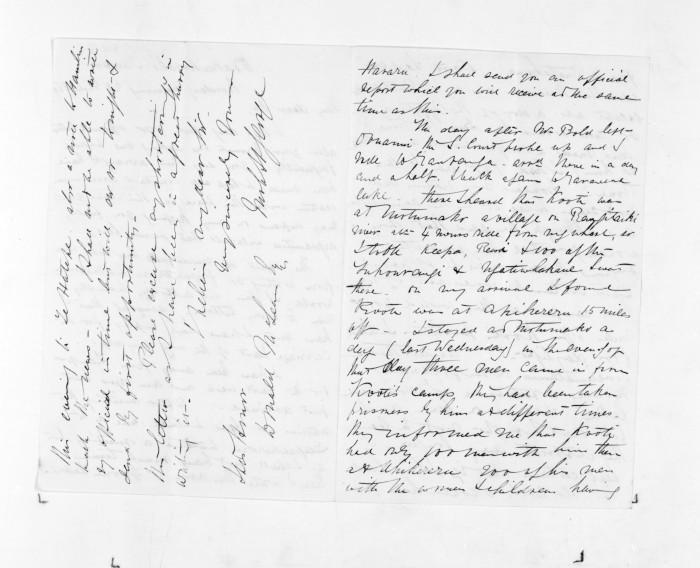 Hararu I shall send you an official
report which you will receive at the same
time as this.
The day after Mr Bold left
the S. Court broke up and I
rode to Tauranga. arrd there in a day
and a half. I
lake. There I heard that Kooti was
at Motumako a village on Rangitaiki
river abt 4 hours ride from my whare, so
I took Keepa, & 100 of the
& went
there. On my arrival I found
Kooti was at Apikereru 15 miles
off. I stayed at Motumako a
day (last Wednesday) in the eveng of
that day three men came in from
Kooti's camp, they had been taken
prisoners by him at different times.
They informed me that Kooti
had only 100 men with him then
at Apikereru 200 of his men
with the women & children having
this evening to also a note to Hamlin
back the news. I shall not be able to write
my official in time but will do so tonight &
send by first opportunity.
Please excuse my shortcomings in
this letter as I have been in a great hurry
writing it.
believe me my dear Sir
Yrs sincerely
His Honor
Donald McLean Esq.